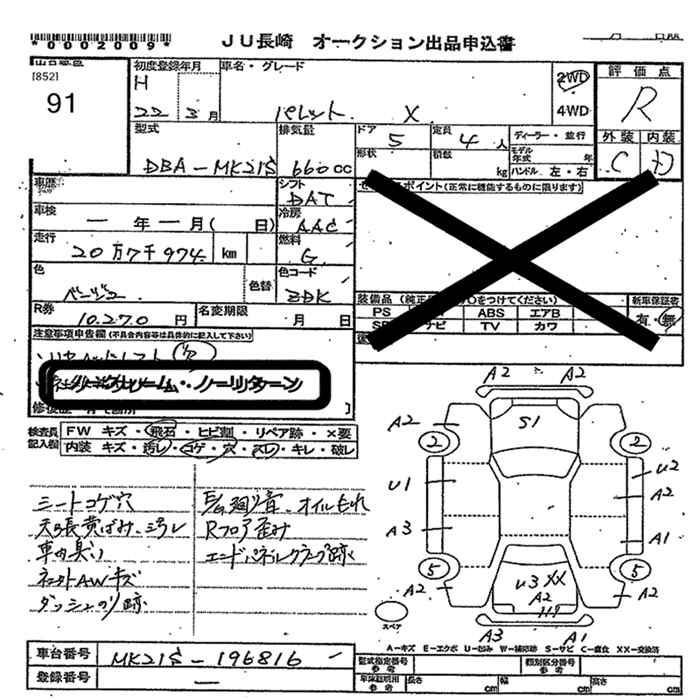 *0002009*
JU長崎 オークション出品申込書
[852]
91
初度登録年月
H 22 3月
車名・グレード
パレット X
2WD
4WD
評価点
R
外装 内装
C D
型式
DBA-MK21S
排気量
660cc
ドア 5
定員 4人
形状
積数 kg
ディーラー・並行
モデル年式 年
ハンドル 左・右
車歴
シフト DAT
車検 一年一月( 日)
冷房 AAC
走行 20万7千974 km
燃料 G
色 ベージュ
色替
色コード ZDK
R券 10.270円
名変期限 月 日
ポイント(正常に機能するものに限ります)
装備品
つけてください)
新車保証書
PS ABS エアB
有・無
ナビ TV カワ
注意事項申告欄(不具合内容等は具体的に記入して下さい)
ノークレーム・ノーリターン
検査員記入欄
FW キズ・飛石・ヒビ割・リペア跡・×要
内装 キズ・汚レ・コゲ・穴・スレ・キレ・破レ
シートコゲ穴
天張黄ばみ、汚レ
車内臭い
ネット AWキズ
ダッシュのり跡
E/G廻り音、オイルもれ
Rフロア歪み
エンドパネルクランプ跡
A2 A2
A2 S1
2 2
U1 U2
A2
A3 A1
5 5
U3 XX
A2
A2 A2
スペア
A3 A1
A-キズ E-エクボ U-凹み W-補修跡 S-サビ C-腐食 XX-交換済
車台番号 MK21S-196816
登録番号 —
型式指定番号 参考
類別区分番号 参考
長さ cm
幅 cm
高さ cm